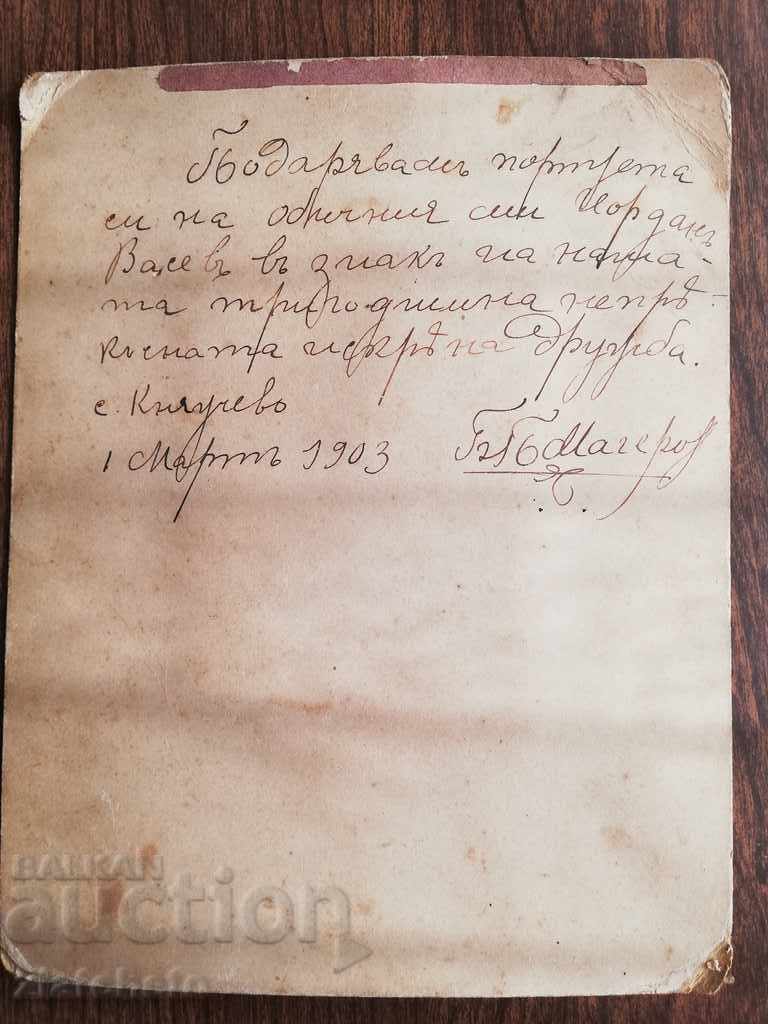 Подарявамъ портрета
си на обичния ми Йорданъ
Валевъ въ знакъ на наша-
та тригодишна непрѣ-
кѫсната искрѣна дружба.
с. Княжево
1 Мартъ 1903 Магеров
BALKAN
auction
zlatcheto